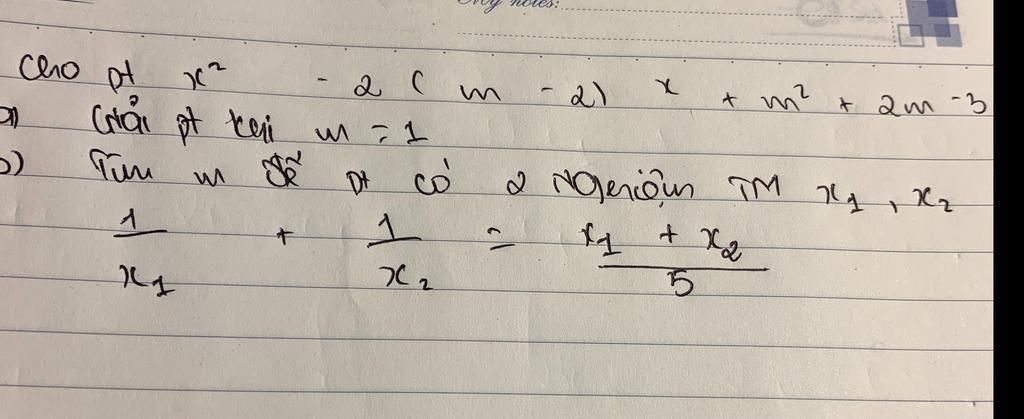 My notes:
Cho pt x² - 2 ( m - 2) x + m² + 2m - 3
a) Giải pt khi m = 1
b) Tìm m để pt có 2 nghiệm TM x₁ , x₂
1/x₁ + 1/x₂ = (x₁ + x₂)/5